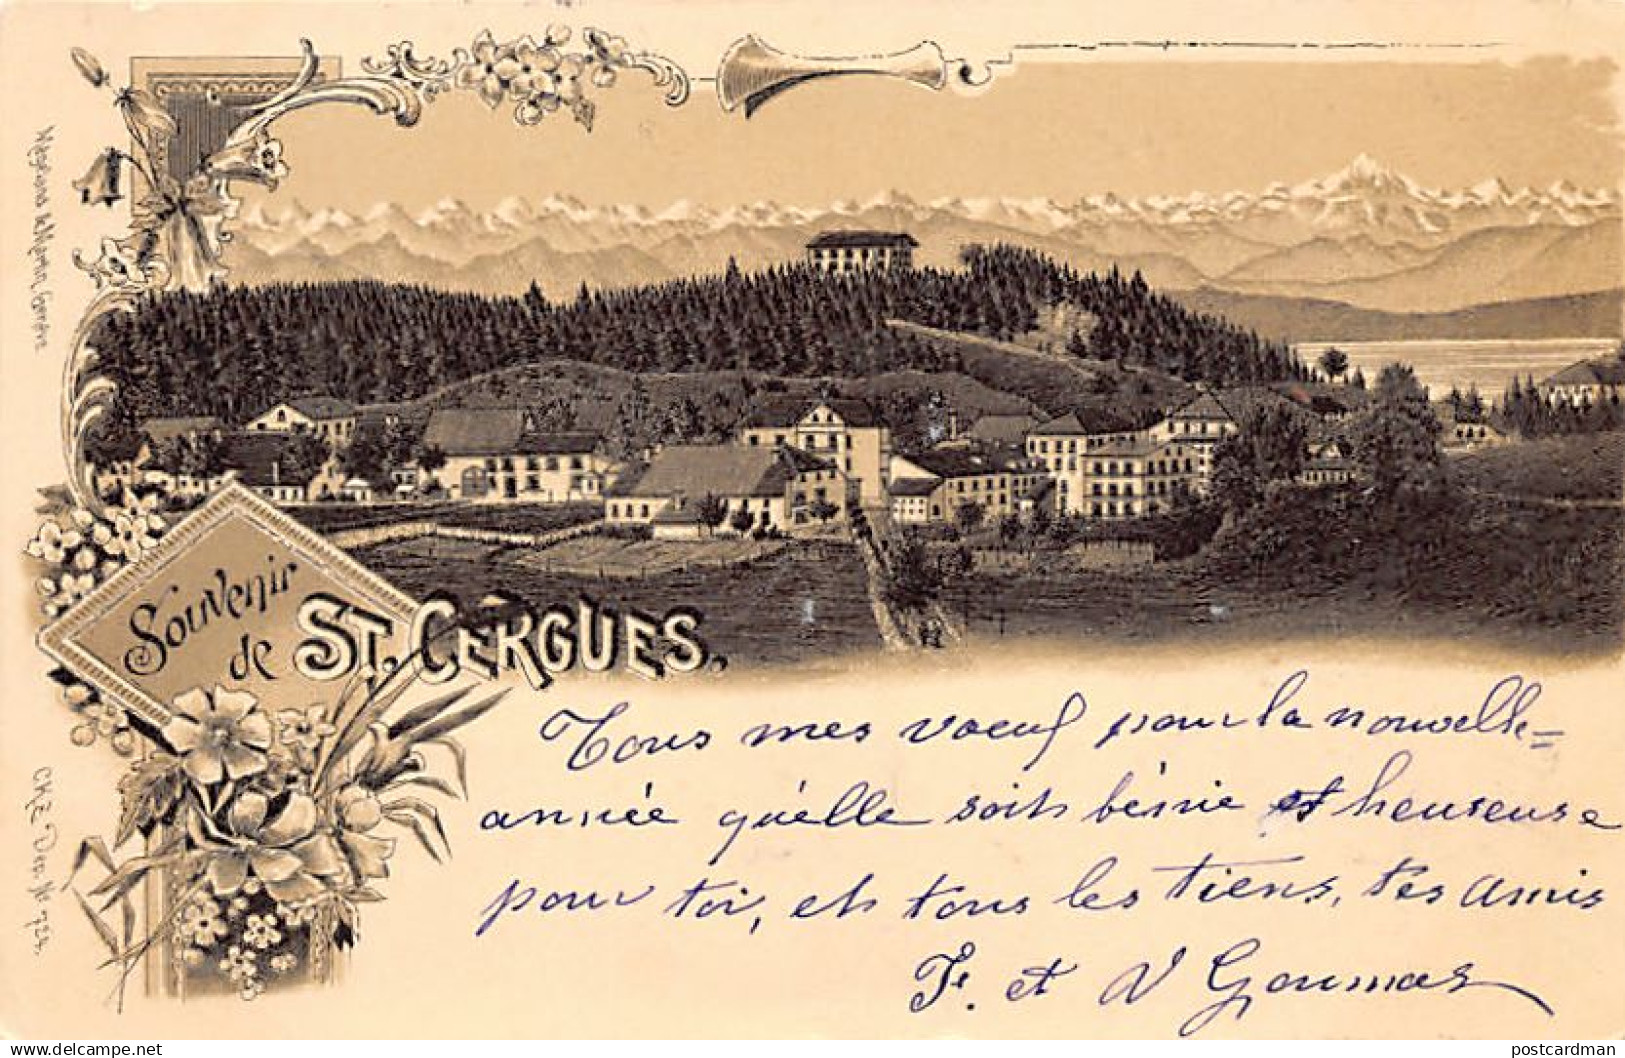 Souvenir
de ST. CERGUES.
Tous mes voeux pour la nouvelle-
année qu'elle soit bénie et heureuse
pour toi, et tous les tiens, tes amis
Fr. et V Goumas
Genève
CKZ Dep. Nº 724.
delcampe.net
postcardman